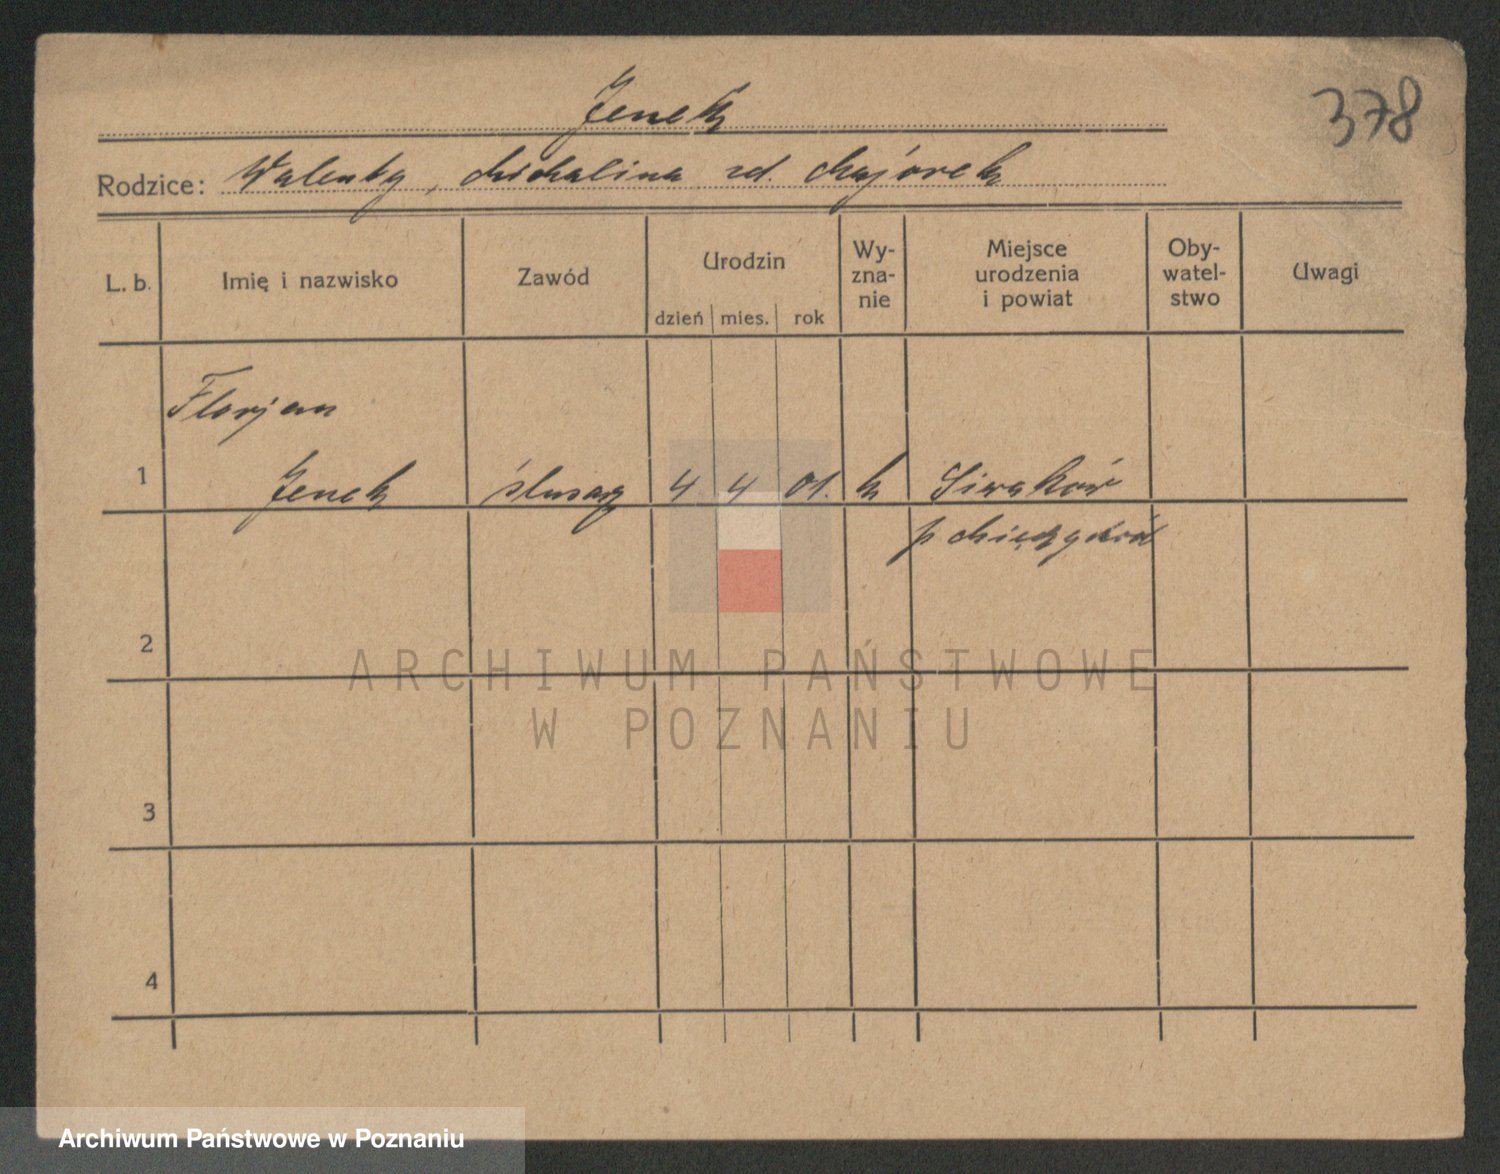 Jenek
378
Rodzice: Walenty, Michalina zd. Majorek
L. b.
Imię i nazwisko
Zawód
Urodzin
dzień mies. rok
Wy-
zna-
nie
Miejsce
urodzenia
i powiat
Oby-
watel-
stwo
Uwagi
Florjan
1 Jenek ślusarz 4 4 01. k Sieraków
p Międzychód
2
3
4
ARCHIWUM PAŃSTWOWE
W POZNANIU
Archiwum Państwowe w Poznaniu